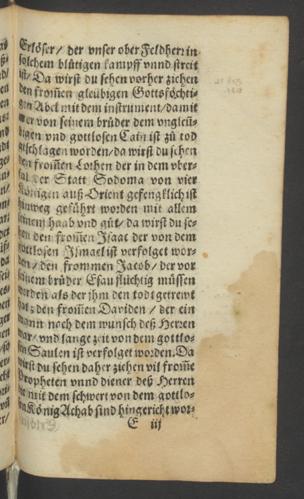 Erlöser/ der vnser ober Feldherr in
solchem blütigen kampff vnnd streit
ist/ Da wirst du sehen vorher ziehen
den from̃en gleübigen Gottsförchti-
gen Abel mit dem instrument/ damit
er von seinem brüder dem vngleü-
bigen vnd gottlosen Cain ist zů tod
geschlagen worden/ da wirst du sehen
den from̃en Lothen der in dem vber-
fal der Statt Sodoma von vier
Königen auß Orient gefengklich ist
hinweg geführt worden mit allem
seinem haab vnd gůt/ da wirst du se-
hen den from̃en Isaac der von dem
gottlosen Ismael ist verfolget wor-
den/ den frommen Jacob/ der vor
seinem brüder Esau flüchtig müssen
werden als der ihm den tod getrewt
hat/ den from̃en Dauiden/ der ein
mann nach dem wunsch deß Herzen
war/ vnd lange zeit von dem gottlo-
sen Saulen ist verfolget worden. Da
wirst du sehen daher ziehen vil from̃e
Propheten vnnd diener deß Herren
die mit dem schwert von dem gottlo-
sen König Achab sind hingericht wor-
E iij